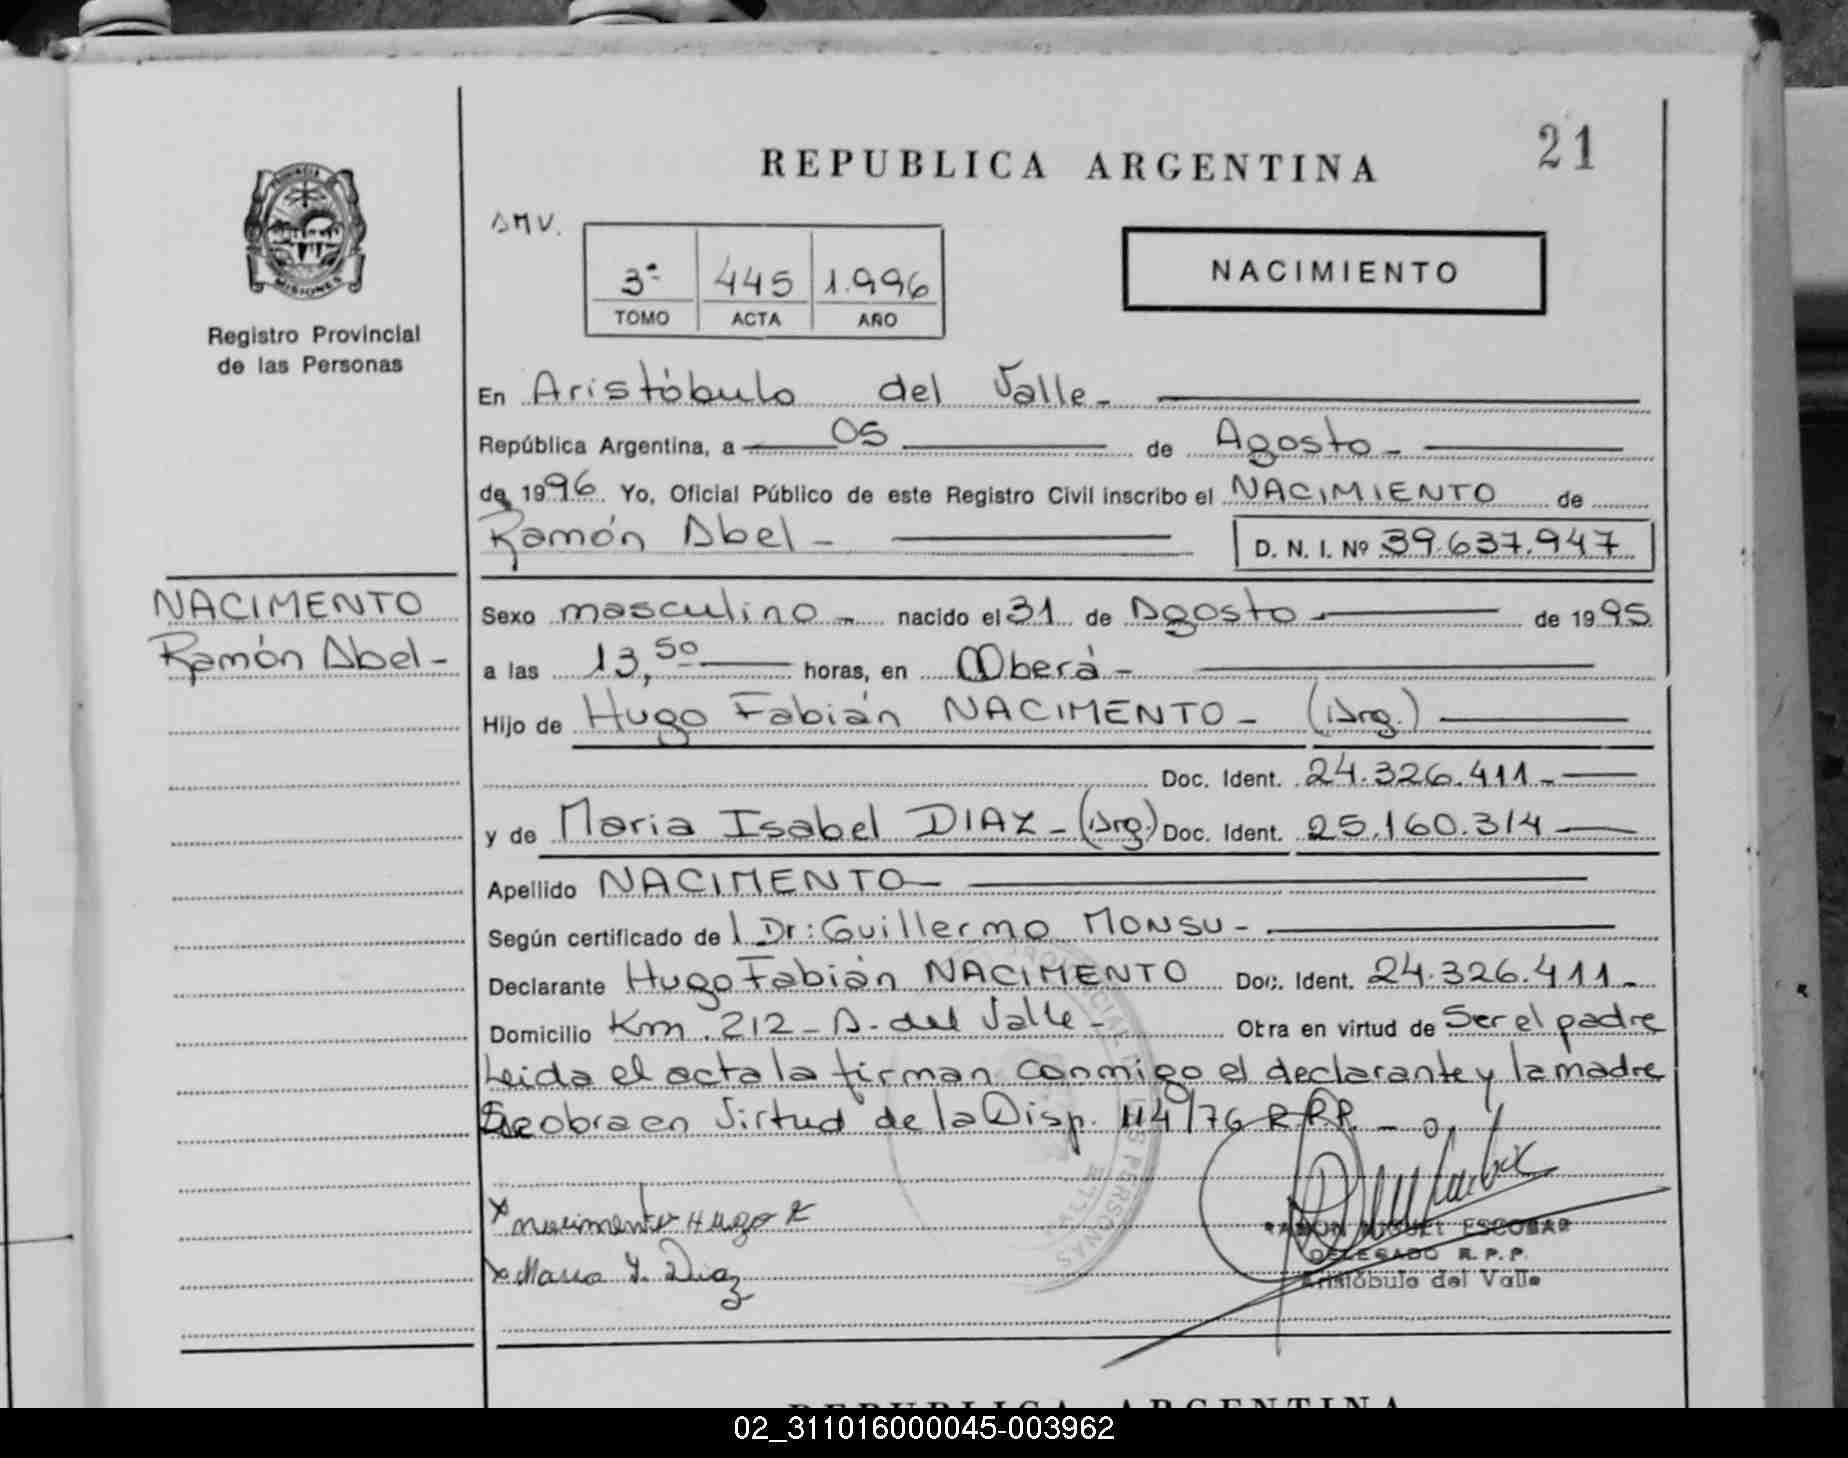 21
REPUBLICA ARGENTINA
PROVINCIA
MISIONES
Registro Provincial
de las Personas
3ª 445 1.996
TOMO ACTA AÑO
NACIMIENTO
En Aristóbulo del Valle-
República Argentina, a 05 de Agosto-
de 1996 Yo, Oficial Público de este Registro Civil inscribo el NACIMIENTO de
Ramón Abel- D. N. I. Nº 39.637.947
NACIMENTO
Ramón Abel-
Sexo masculino- nacido el 31 de Agosto- de 1995
a las 13,50 horas, en Oberá-
Hijo de Hugo Fabián NACIMENTO- (Arg.)
Doc. Ident. 24.326.411-
y de Maria Isabel DIAZ-(Arg.) Doc. Ident. 25.160.314
Apellido NACIMENTO-
Según certificado de l Dr: Guillermo MONSU-
Declarante Hugo Fabián NACIMENTO Doc. Ident. 24.326.411-
Domicilio Km. 212-A. del Valle- Obra en virtud de Ser el padre
Leida el acta la firman conmigo el declarante y la madre
Se obra en Virtud de la Disp. 114/76 R.P.P.-
x nacimento Hugo F
x Maria I. Diaz
RAMON MIGUEL ESCOBAR
DELEGADO R.P.P.
Aristóbulo del Valle
REPUBLICA ARGENTINA
02_311016000045-003962